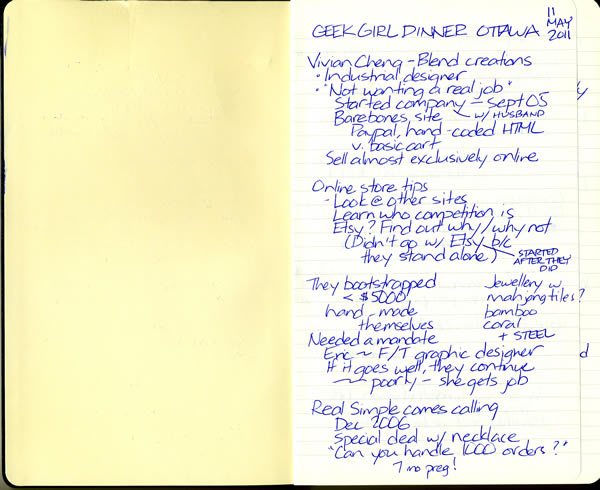 GEEK GIRL DINNER OTTAWA
11
MAY
2011
Vivian Cheng - Blend creations
• Industrial designer
• "Not wanting a real job"
Started company - Sept 05
Barebones site
w/ HUSBAND
Paypal, hand-coded HTML
v. basic cart
Sell almost exclusively online
Online store tips
- Look @ other sites
Learn who competition is
Etsy? Find out why/why not
(Didn't go w/ Etsy b/c
they stand alone)
STARTED
AFTER THEY
DID
They bootstrapped
< $5000
hand-made
themselves
Jewellery w
mahjong tiles?
bamboo
coral
+ STEEL
Needed a mandate
Eric ~ F/T graphic designer
If it goes well, they continue
~ poorly - she gets job
Real Simple comes calling
Dec 2006
Special deal w/ necklace
"Can you handle 1000 orders?"
7 mo preg!
y
d